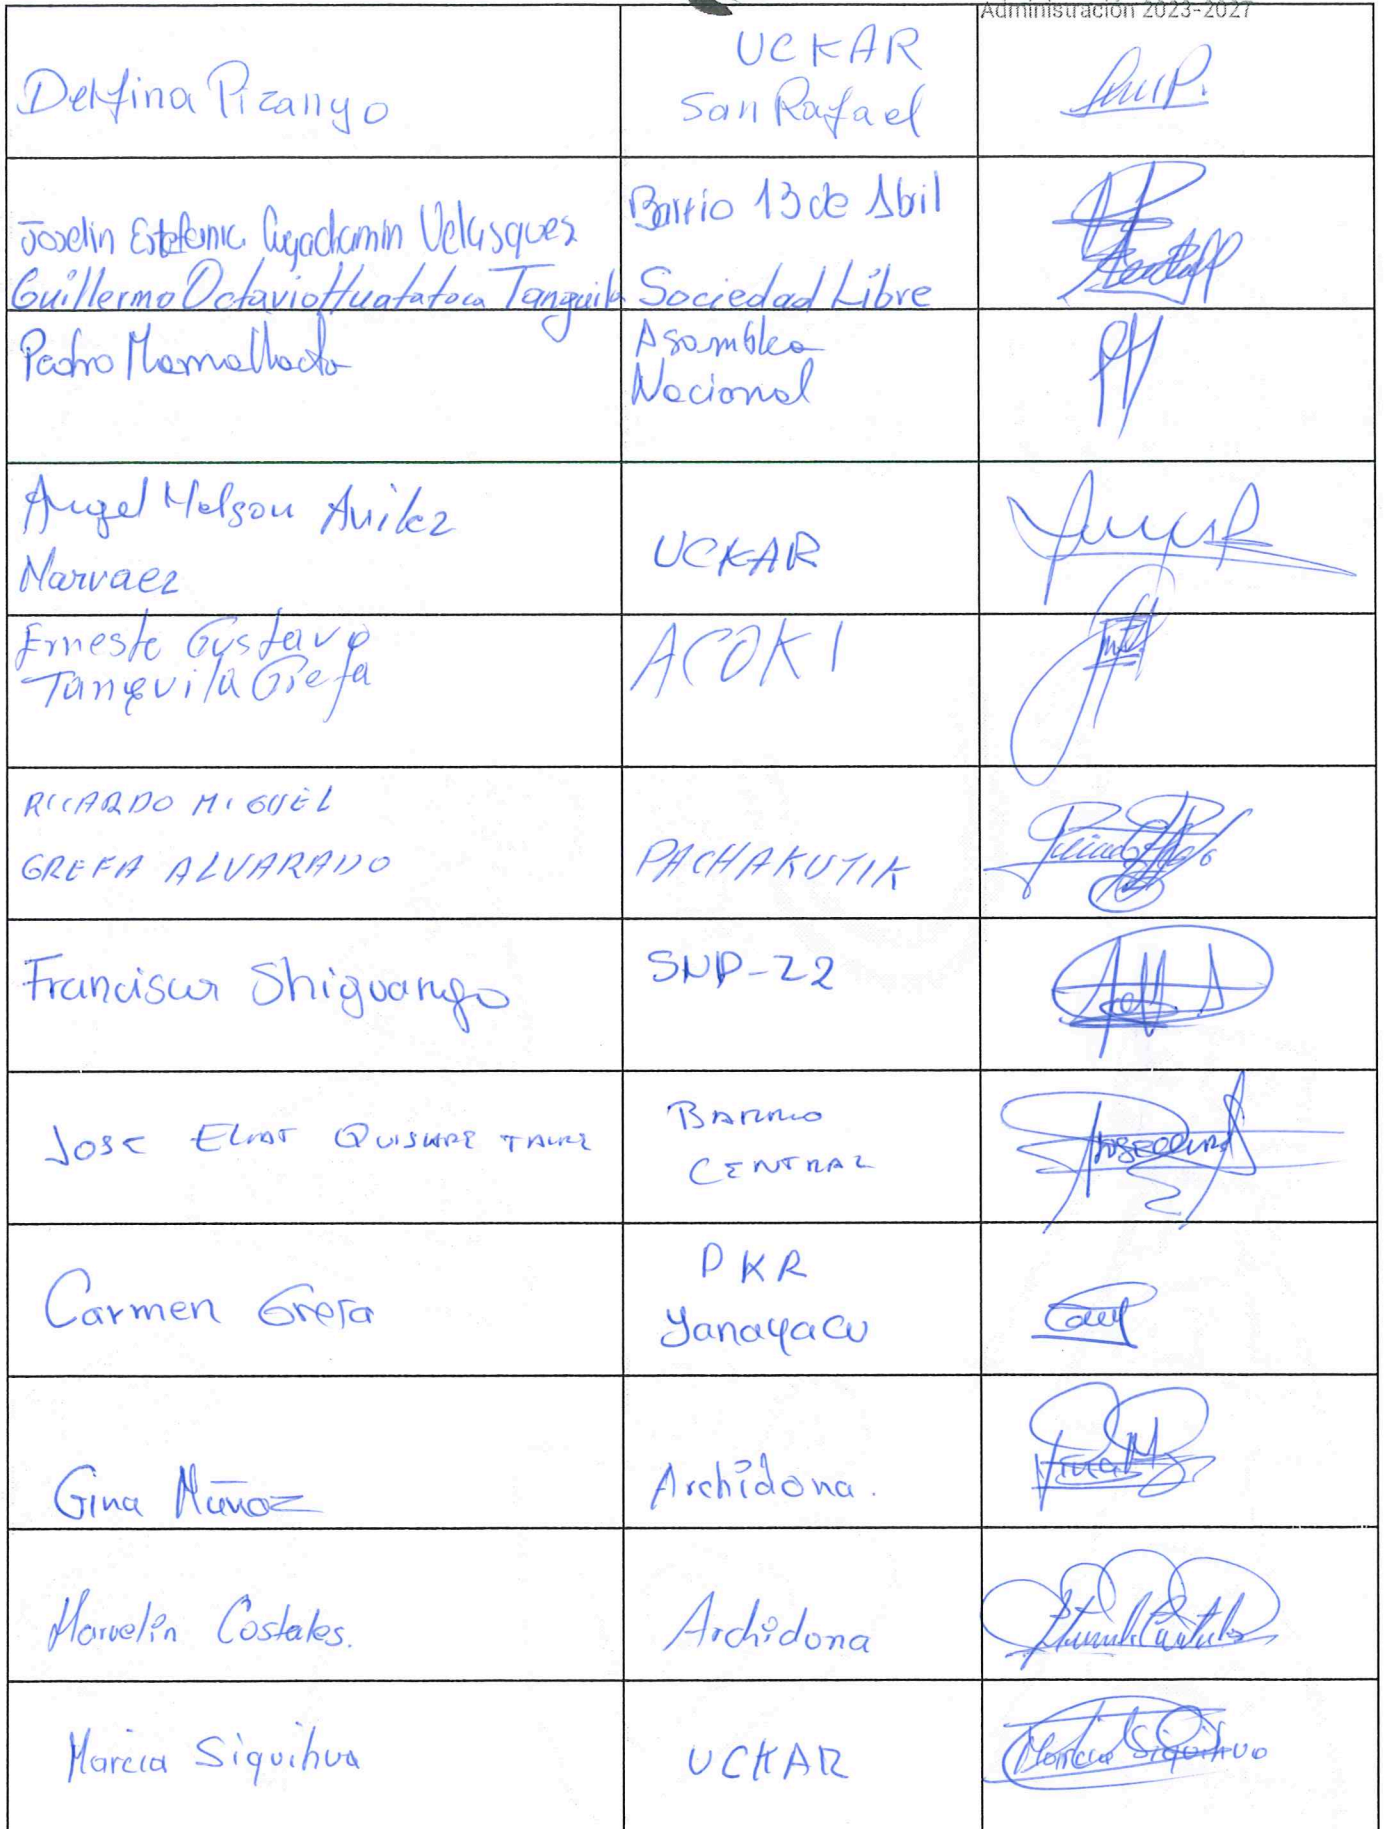 Administración 2023-2027
Delfina Pizango
UCKAR
San Rafael
Joselin Estefania Cuyachamin Velasquez
Barrio 13 de Abril
Guillermo Octavio Huatatoca Tanguila
Sociedad Libre
Pedro Mamallacta
Asamblea
Nacional
Angel Nelson Avilez
Narvaez
UCKAR
Ernesto Gustavo
Tanguila Grefa
ACOKI
RICARDO MIGUEL
GREFA ALVARADO
PACHAKUTIK
Francisco Shiguango
SNP-22
JOSE QUISHPE
BARRIO
CENTRAL
Carmen Grefa
PKR
Yanayacu
Gina Muñoz
Archidona.
Marvelin Costales.
Archidona
Marcia Siquihua
UCKAR
Marcia Siquihua